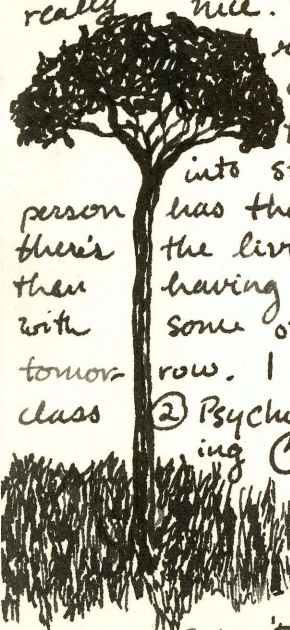 really nice.
into
person has the
there's the liv
than having
with some o
tomor- row. I
class ② Psych
ing